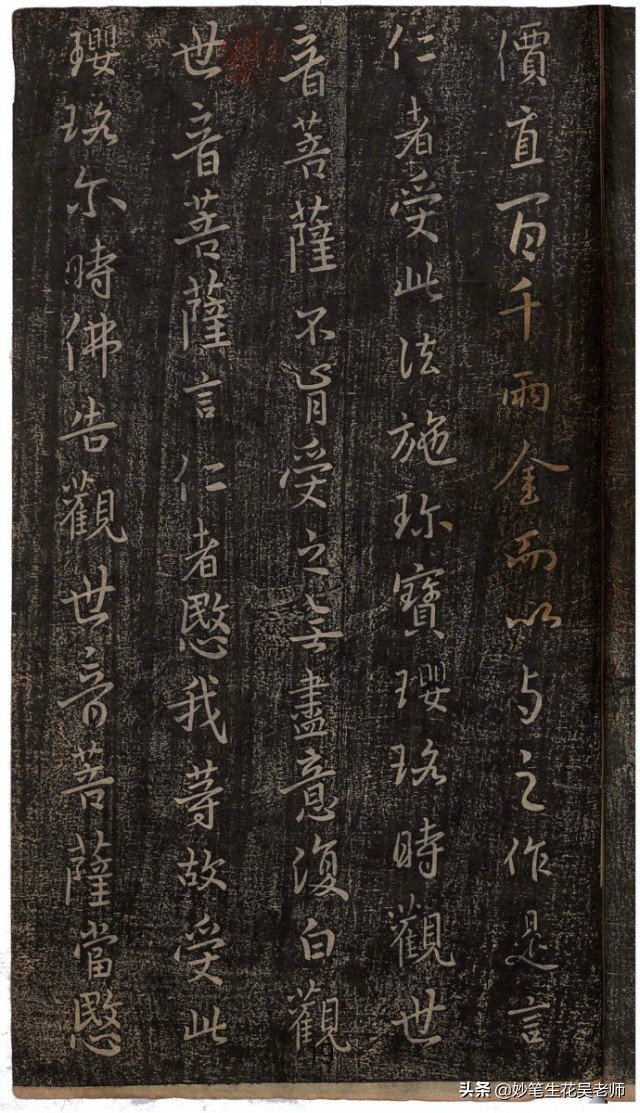 價直百千兩金而以与之作是言
仁者受此法施珎寶瓔珞時觀世
音菩薩不肯受之無盡意復白觀
世音菩薩言仁者愍我等故受此
瓔珞尔時佛告觀世音菩薩當愍
19
头条 @妙笔生花吴老师